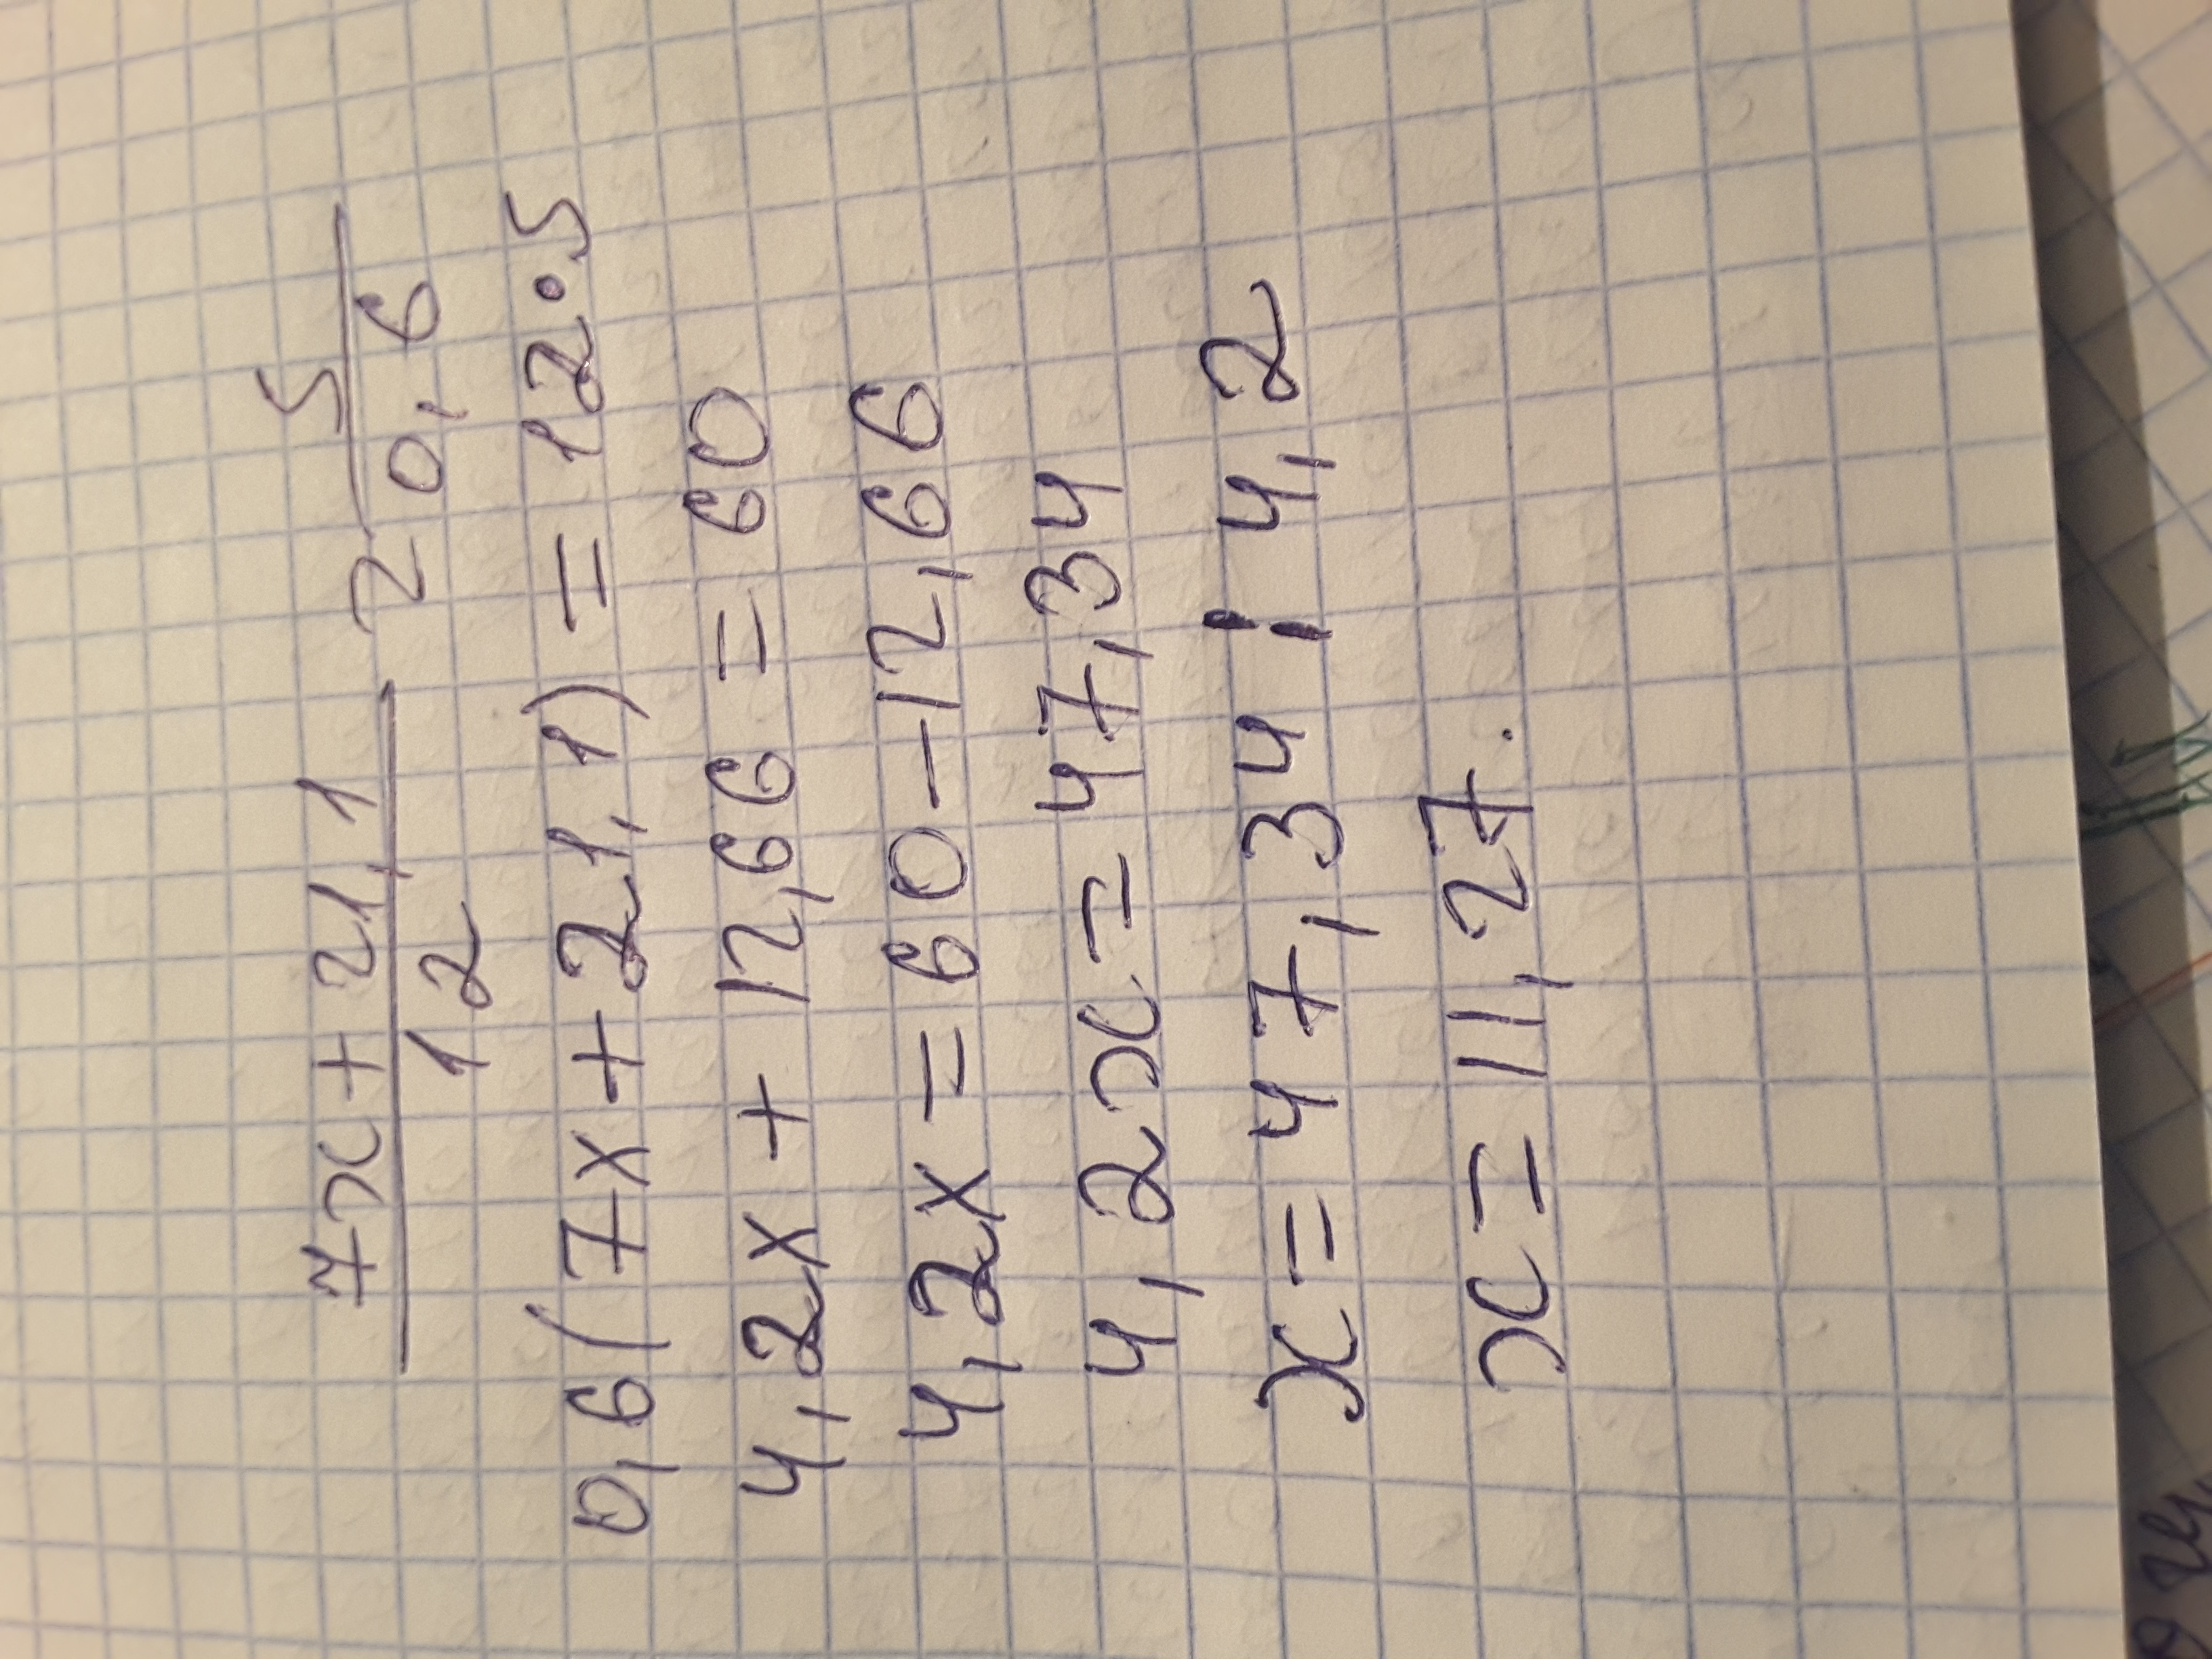 7x + 21,1 5
12 2 0,6
0,6(7x + 21,1) = 12·5
4,2x + 12,66 = 60
4,2x = 60 - 12,66
4,2x = 47,34
x = 47,34 : 4,2
x = 11,27.